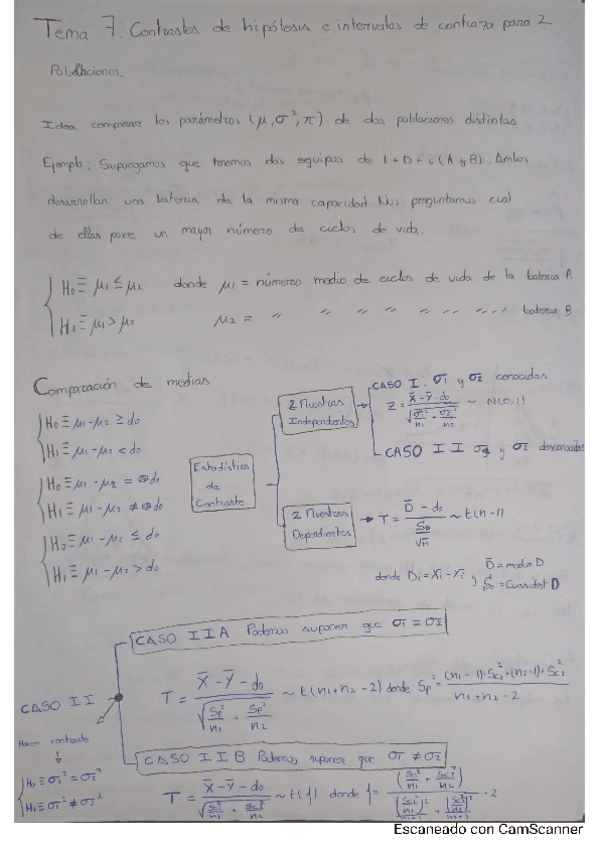 Tema 7: Contrastes de hipótesis e intervalos de confianza para 2
Poblaciones.
Idea comparar los parámetros (μ, σ², π) de dos poblaciones distintas
Ejemplo: Supongamos que tenemos dos equipos de I+D+i (A y B). Ambos
desarrollan una bateria de la misma capacidad. Nos preguntamos cual
de ellas posee un mayor número de ciclos de vida.
H₀ ≡ μ₁ ≤ μ₂ donde μ₁ = número medio de ciclos de vida de la bateria A
H₁ ≡ μ₁ > μ₂ μ₂ = " " " " " " " " bateria B
Comparación de medias
H₀ ≡ μ₁ - μ₂ ≥ d₀
H₁ ≡ μ₁ - μ₂ < d₀
H₀ ≡ μ₁ - μ₂ = d₀
H₁ ≡ μ₁ - μ₂ ≠ d₀
H₀ ≡ μ₁ - μ₂ ≤ d₀
H₁ ≡ μ₁ - μ₂ > d₀
Estadístico
de
Contraste
2 Muestras
Independientes
CASO I: σ₁ y σ₂ conocidas
Z = (X̄ - Ȳ - d₀) / √(σ₁²/n₁ + σ₂²/n₂) ~ N(0,1)
CASO II σ₁ y σ₂ desconocidas
2 Muestras
Dependientes
T = (D̄ - d₀) / (S_D/√n) ~ t(n-1)
donde Dᵢ = Xᵢ - Yᵢ y D̄ = media D
= Cuasidest D
CASO II
CASO II A Podemos suponer que σ₁ = σ₂
T = (X̄ - Ȳ - d₀) / √(Sp²/n₁ + Sp²/n₂) ~ t(n₁+n₂-2) donde Sp² = ((n₁-1)·Sc₁² + (n₂-1)·Sc₂²) / (n₁+n₂-2)
Hacer contraste
H₀ ≡ σ₁² = σ₂²
H₁ ≡ σ₁² ≠ σ₂²
CASO II B Podemos suponer que σ₁ ≠ σ₂
T = (X̄ - Ȳ - d₀) / √(Sc₁²/n₁ + Sc₂²/n₂) ~ t(f) donde f = (Sc₁²/n₁ + Sc₂²/n₂)² / ((Sc₁²/n₁)²/(n₁+1) + (Sc₂²/n₂)²/(n₂+1)) - 2
Escaneado con CamScanner